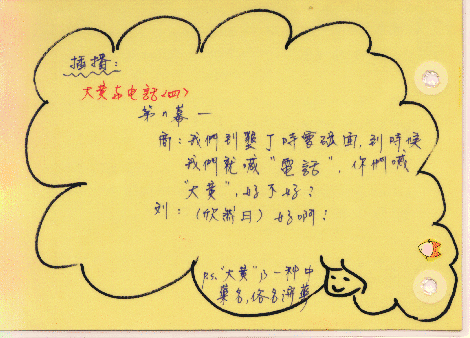 插撥：
大黄与电話<四>
第n幕一
商：我們到墾丁時會碰面，到時候
我們就喊"電話"，你們喊
"大黄"，好不好？
刘：（欣然曰）好啊！
p.s. "大黄"乃一种中
藥名，俗名瀉藥